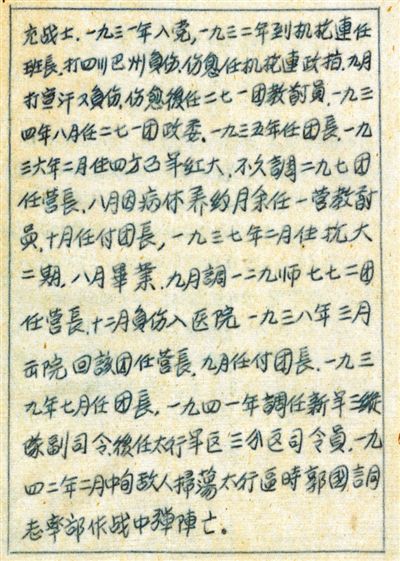 充战士.一九三一年入党,一九三二年到机枪連任
班長.打四川巴州負伤,伤愈任机枪連政指.九月
打宣汗又負伤,伤愈後任二七一团教導員.一九三
四年八月任二七一团政委.一九三五年任团長.一九
三六年二月住四方面軍紅大,不久調二九七团
任营長.八月因病休养約月余任一营教導
員.十月任付团長,一九三七年二月住抗大
二期.八月畢業.九月調一二九师七七二团
任营長.十二月負伤入医院一九三八年三月
出院回該团任营長.九月任付团長.一九三
九年七月任团長,一九四一年調任新軍三縱
隊副司令.後任太行軍区三分区司令員.一九
四二年二月中旬敌人掃蕩太行區時郭國言同
志率部作战中彈陣亡。